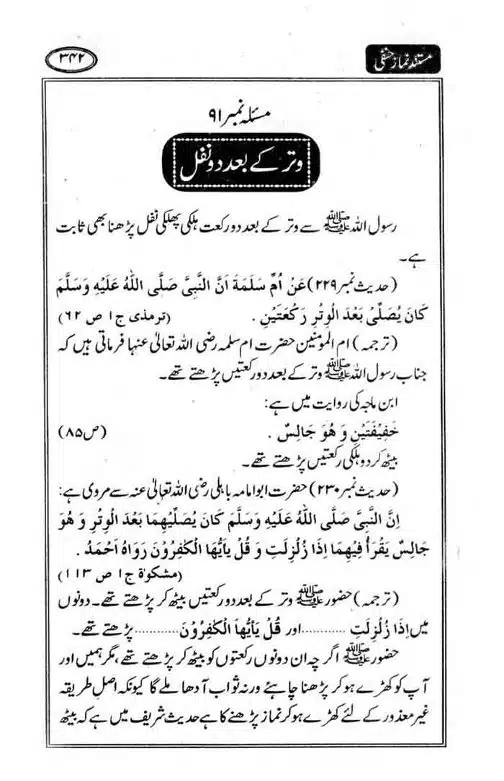 مستند نماز حنفی
۳۴۲
مسئلہ نمبر ۹۱
وتر کے بعد دو نفل
رسول اللہ ﷺ سے وتر کے بعد دو رکعت ہلکی پھلکی نفل پڑھنا بھی ثابت
ہے۔
(حدیث نمبر ۲۲۹) عَنْ اُمِّ سَلْمَةَ اَنَّ النَّبِیَّ صَلَّی اللهُ عَلَیْهِ وَسَلَّمَ
کَانَ یُصَلِّیْ بَعْدَ الْوِتْرِ رَکْعَتَیْنِ . (ترمذی ج۱ ص ۶۲)
(ترجمہ) ام المومنین حضرت ام سلمہ رضی اللہ تعالیٰ عنہا فرماتی ہیں کہ
جناب رسول اللہ ﷺ وتر کے بعد دو رکعتیں پڑھتے تھے۔
ابن ماجہ کی روایت میں ہے:
خَفِیْفَتَیْنِ وَ هُوَ جَالِسٌ . (ص۸۵)
بیٹھ کر دو ہلکی رکعتیں پڑھتے تھے۔
(حدیث نمبر ۲۳۰) حضرت ابو امامہ باہلی رضی اللہ تعالیٰ عنہ سے مروی ہے:
اِنَّ النَّبِیَّ صَلَّی اللهُ عَلَیْهِ وَسَلَّمَ کَانَ یُصَلِّیْهِمَا بَعْدَ الْوِتْرِ وَ هُوَ
جَالِسٌ یَقْرَأُ فِیْهِمَا اِذَا زُلْزِلَتِ وَ قُلْ یٰاَیُّهَا الْکٰفِرُوْنَ رَوَاهُ اَحْمَدُ .
(مشکوة ج۱ ص ۱۱۳)
(ترجمہ) حضور ﷺ وتر کے بعد دو رکعتیں بیٹھ کر پڑھتے تھے۔ دونوں
میں اِذَا زُلْزِلَتِ ............ اور قُلْ یٰاَیُّهَا الْکٰفِرُوْنَ ............ پڑھتے تھے۔
حضور ﷺ اگر چہ ان دونوں رکعتوں کو بیٹھ کر پڑھتے تھے، مگر ہمیں اور
آپ کو کھڑے ہو کر پڑھنا چاہئے ورنہ ثواب آدھا ملے گا کیونکہ اصل طریقہ
غیر معذور کے لئے کھڑے ہو کر نماز پڑھنے کا ہے حدیث شریف میں ہے کہ بیٹھ